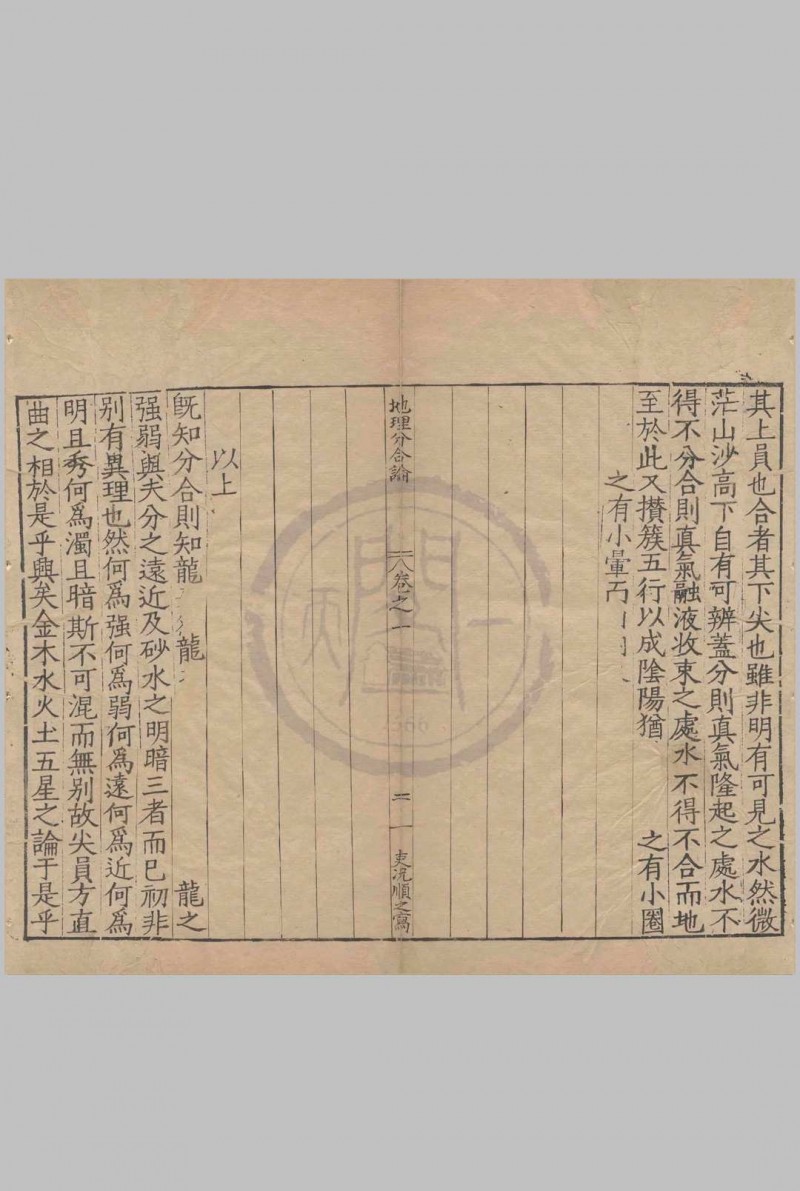 其上員也合者其下尖也雖非明有可見之水然微
茫山沙高下自有可辨蓋分則真氣隆起之處水不
得不分合則真氣融液收束之處水不得不合而地
至於此又攅簇五行以成陰陽猶之有小圈
之有小暈
地理分合論
卷之一
二
吏沈順之寫
以上
旣知分合則知龍龍龍之
强弱與夫分之遠近及砂水之明暗三者而已初非
別有異理也然何爲强何爲弱何爲遠何爲近何爲
明且秀何爲濁且暗斯不可混而無別故尖員方直
曲之相於是乎興矣金木水火土五星之論于是乎